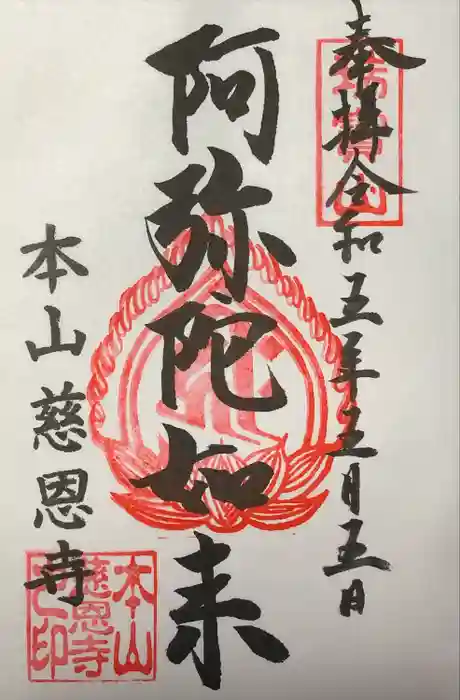 奉拝 令和五年五月五日
阿弥陀如来
本山慈恩寺
本山
慈恩寺
之印